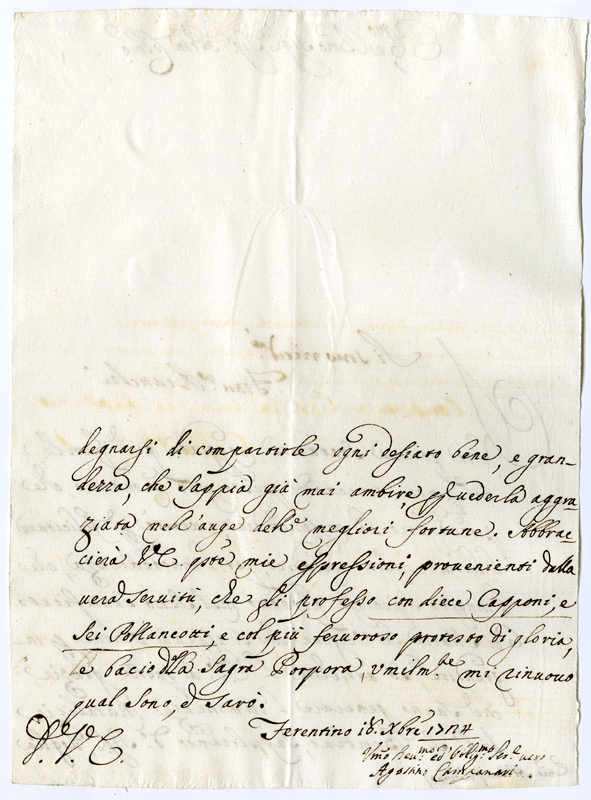 degnarsi di compartirle ogni desiato bene, e gran-
dezza, che sappia già mai ambire, p vederla aggra-
ziata nell'auge delle megliori fortune. Abbrac-
cierà V.E. qste mie espressioni, provenienti dalla
vera servitù, che gli professo con diece Capponi, e
sei Pollancotti, e col più fervoroso protesto di gloria,
le bacio della Sagra Porpora, umilmte mi rinuovo
qual sono, e sarò.
Ferentino 16 Xbre 1724
V.V.E.
Umo Devmo ed Obligmo Sere vero
Agostino Campanari